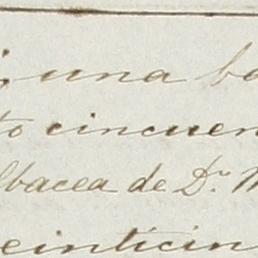 ; una ba
to cincuen
lbacea de Dn M
veinticin